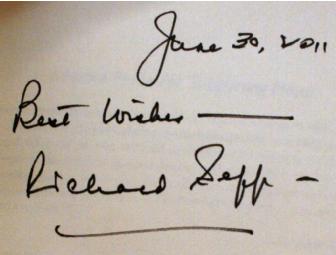 June 30, 2011
Best Wishes —
Richard Sepp —